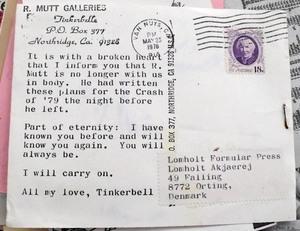 R. MUTT GALLERIES
Tinkerbelle
P.O. Box 377
Northridge, Ca. 91328
It is with a broken heart
that I inform you that R.
Mutt is no longer with us
in body. He had written
these plans for the Crash
of '79 the night before
he left.
Part of eternity: I have
known you before and will
know you again. You will
always be.
I will carry on.
All my love, Tinkerbell
VAN NUYS, CA
PM
1978
18c
P.O. BOX 377, NORTHRIDGE, CA 91328
Lomholt Formular Press
Lomholt Akjaerej
49 Falling
8772 Orting,
Denmark